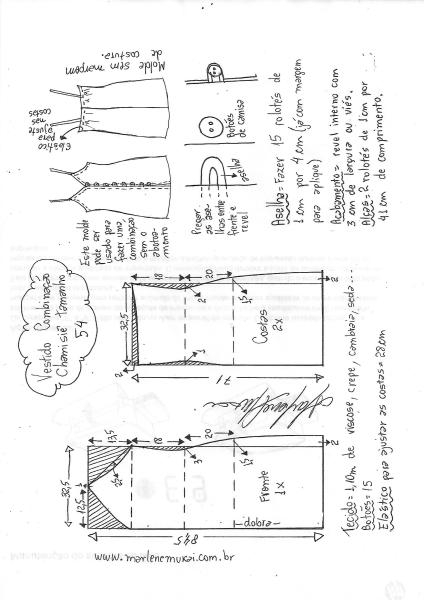 Vestido Combinação
Chemisiê tamanho
54
Este molde
pode ser
usado para
fazer uma
combinação
sem o
abotoa-
mento
Elástico
para
ajuste
nas
costas
Molde sem margem
de costura.
Pregar
as asel-
lhas entre
frente e
revel
aselha
Botões
de camisa
Aselha = Fazer 15 rolotês de
1cm por 4cm (já com margem
para aplique)
Acabamento = revel interno com
3 cm de largura ou viés.
Alças = 2 rolotês de 1cm por
41 cm de comprimento.
32,5
18
20
2
2
3
1,5
2
Costas
2x
71
32,5
12,5
13,5
18
20
2,5
3
1,5
2
Frente
1x
dobra
84,5
www.marlenemukai.com.br
Tecido = 1,10m de viscose, crepe, cambraia, seda...
Botões = 15
Elástico para ajustar as costas = 28cm